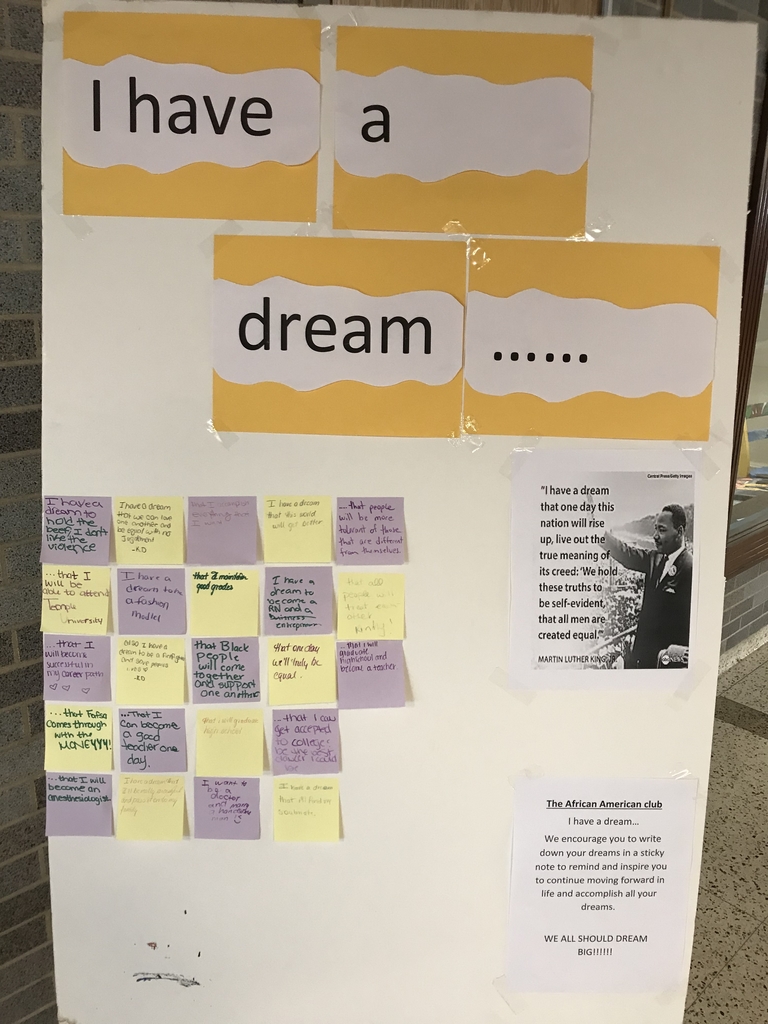 I have
a
dream
......
I have a
dream to
hold the
beef, I don't
like the
violence
I have a dream
that we can love
one another and
be equal with no
judgement
-KD
I have a dream
that this world
will get better
....that people
will be more
tolerant of those
that are different
from themselves.
...that I
will be
able to attend
Temple
University
I have a
dream to be
a fashion
model
that I'll maintain
good grades
I have a
dream to
become a
RN and a
business
entrepreneur
that all
people will
treat each
other
kindly!
...that I
will become
successful in
my career path
also I have a
dream to be a firefighter
and save
-KD
that Black
people
will come
together and
support one
another
that one day
we'll truly be
equal.
...that I will
graduate
highschool and
become a teacher
...that Fafsa
comes through
with the
MONEYYY!
...That I
can become
a good
teacher one
day.
that I will graduate
high school
...that I can
get accepted
to college
be the best
I could
be
...that I will
become an
anesthesiologist
I have a dream that
I'll be really successful
and
family
I want to
be a
doctor
and marry
a handsome
man
I have a dream
that I'll find my
soulmate.
Central Press/Getty Images
"I have a dream
that one day this
nation will rise
up, live out the
true meaning of
its creed: 'We hold
these truths to
be self-evident,
that all men are
created equal.'"
MARTIN LUTHER KING, JR.
abc NEWS
The African American club
I have a dream...
We encourage you to write
down your dreams in a sticky
note to remind and inspire you
to continue moving forward in
life and accomplish all your
dreams.
WE ALL SHOULD DREAM
BIG!!!!!!